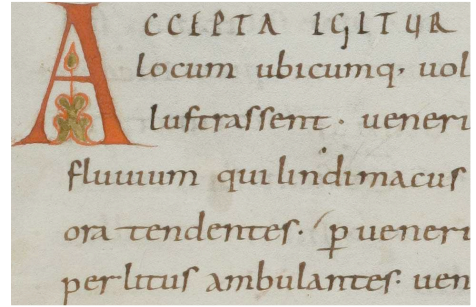 ACCEPTA IGITUR
locum ubicumq· uol
lustrassent · ueneri
fluuium qui lindimacus
ora tendentes· p ueneri
per litus ambulantes· uen